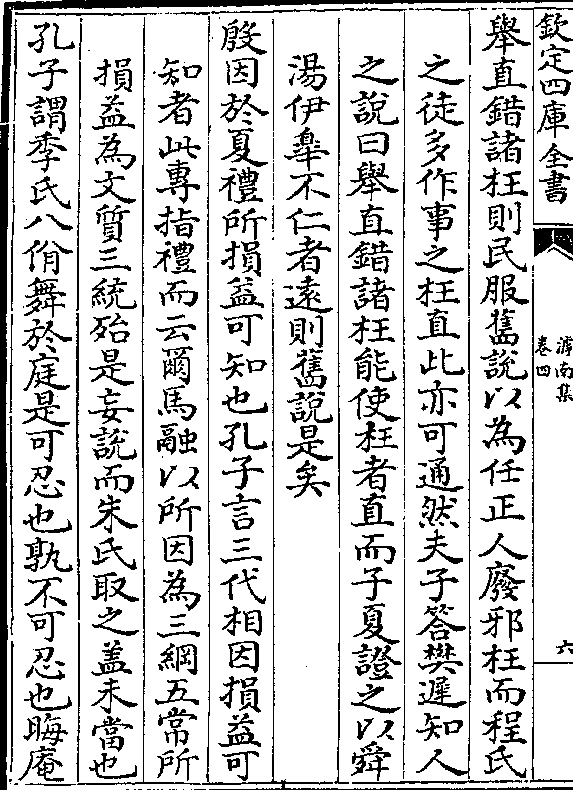 欽定四庫全書
滹南集
卷四
六
舉直錯諸枉則民服舊說以為任正人廢邪枉而程氏
之徒多作事之枉直此亦可通然夫子答樊遲知人
之說曰舉直錯諸枉能使枉者直而子夏證之以舜
湯伊臯不仁者遠則舊說是矣
殷因於夏禮所損益可知也孔子言三代相因損益可
知者此專指禮而云爾馬融以所因為三綱五常所
損益為文質三統殆是妄說而朱氏取之盖未當也
孔子謂季氏八佾舞於庭是可忍也孰不可忍也晦庵